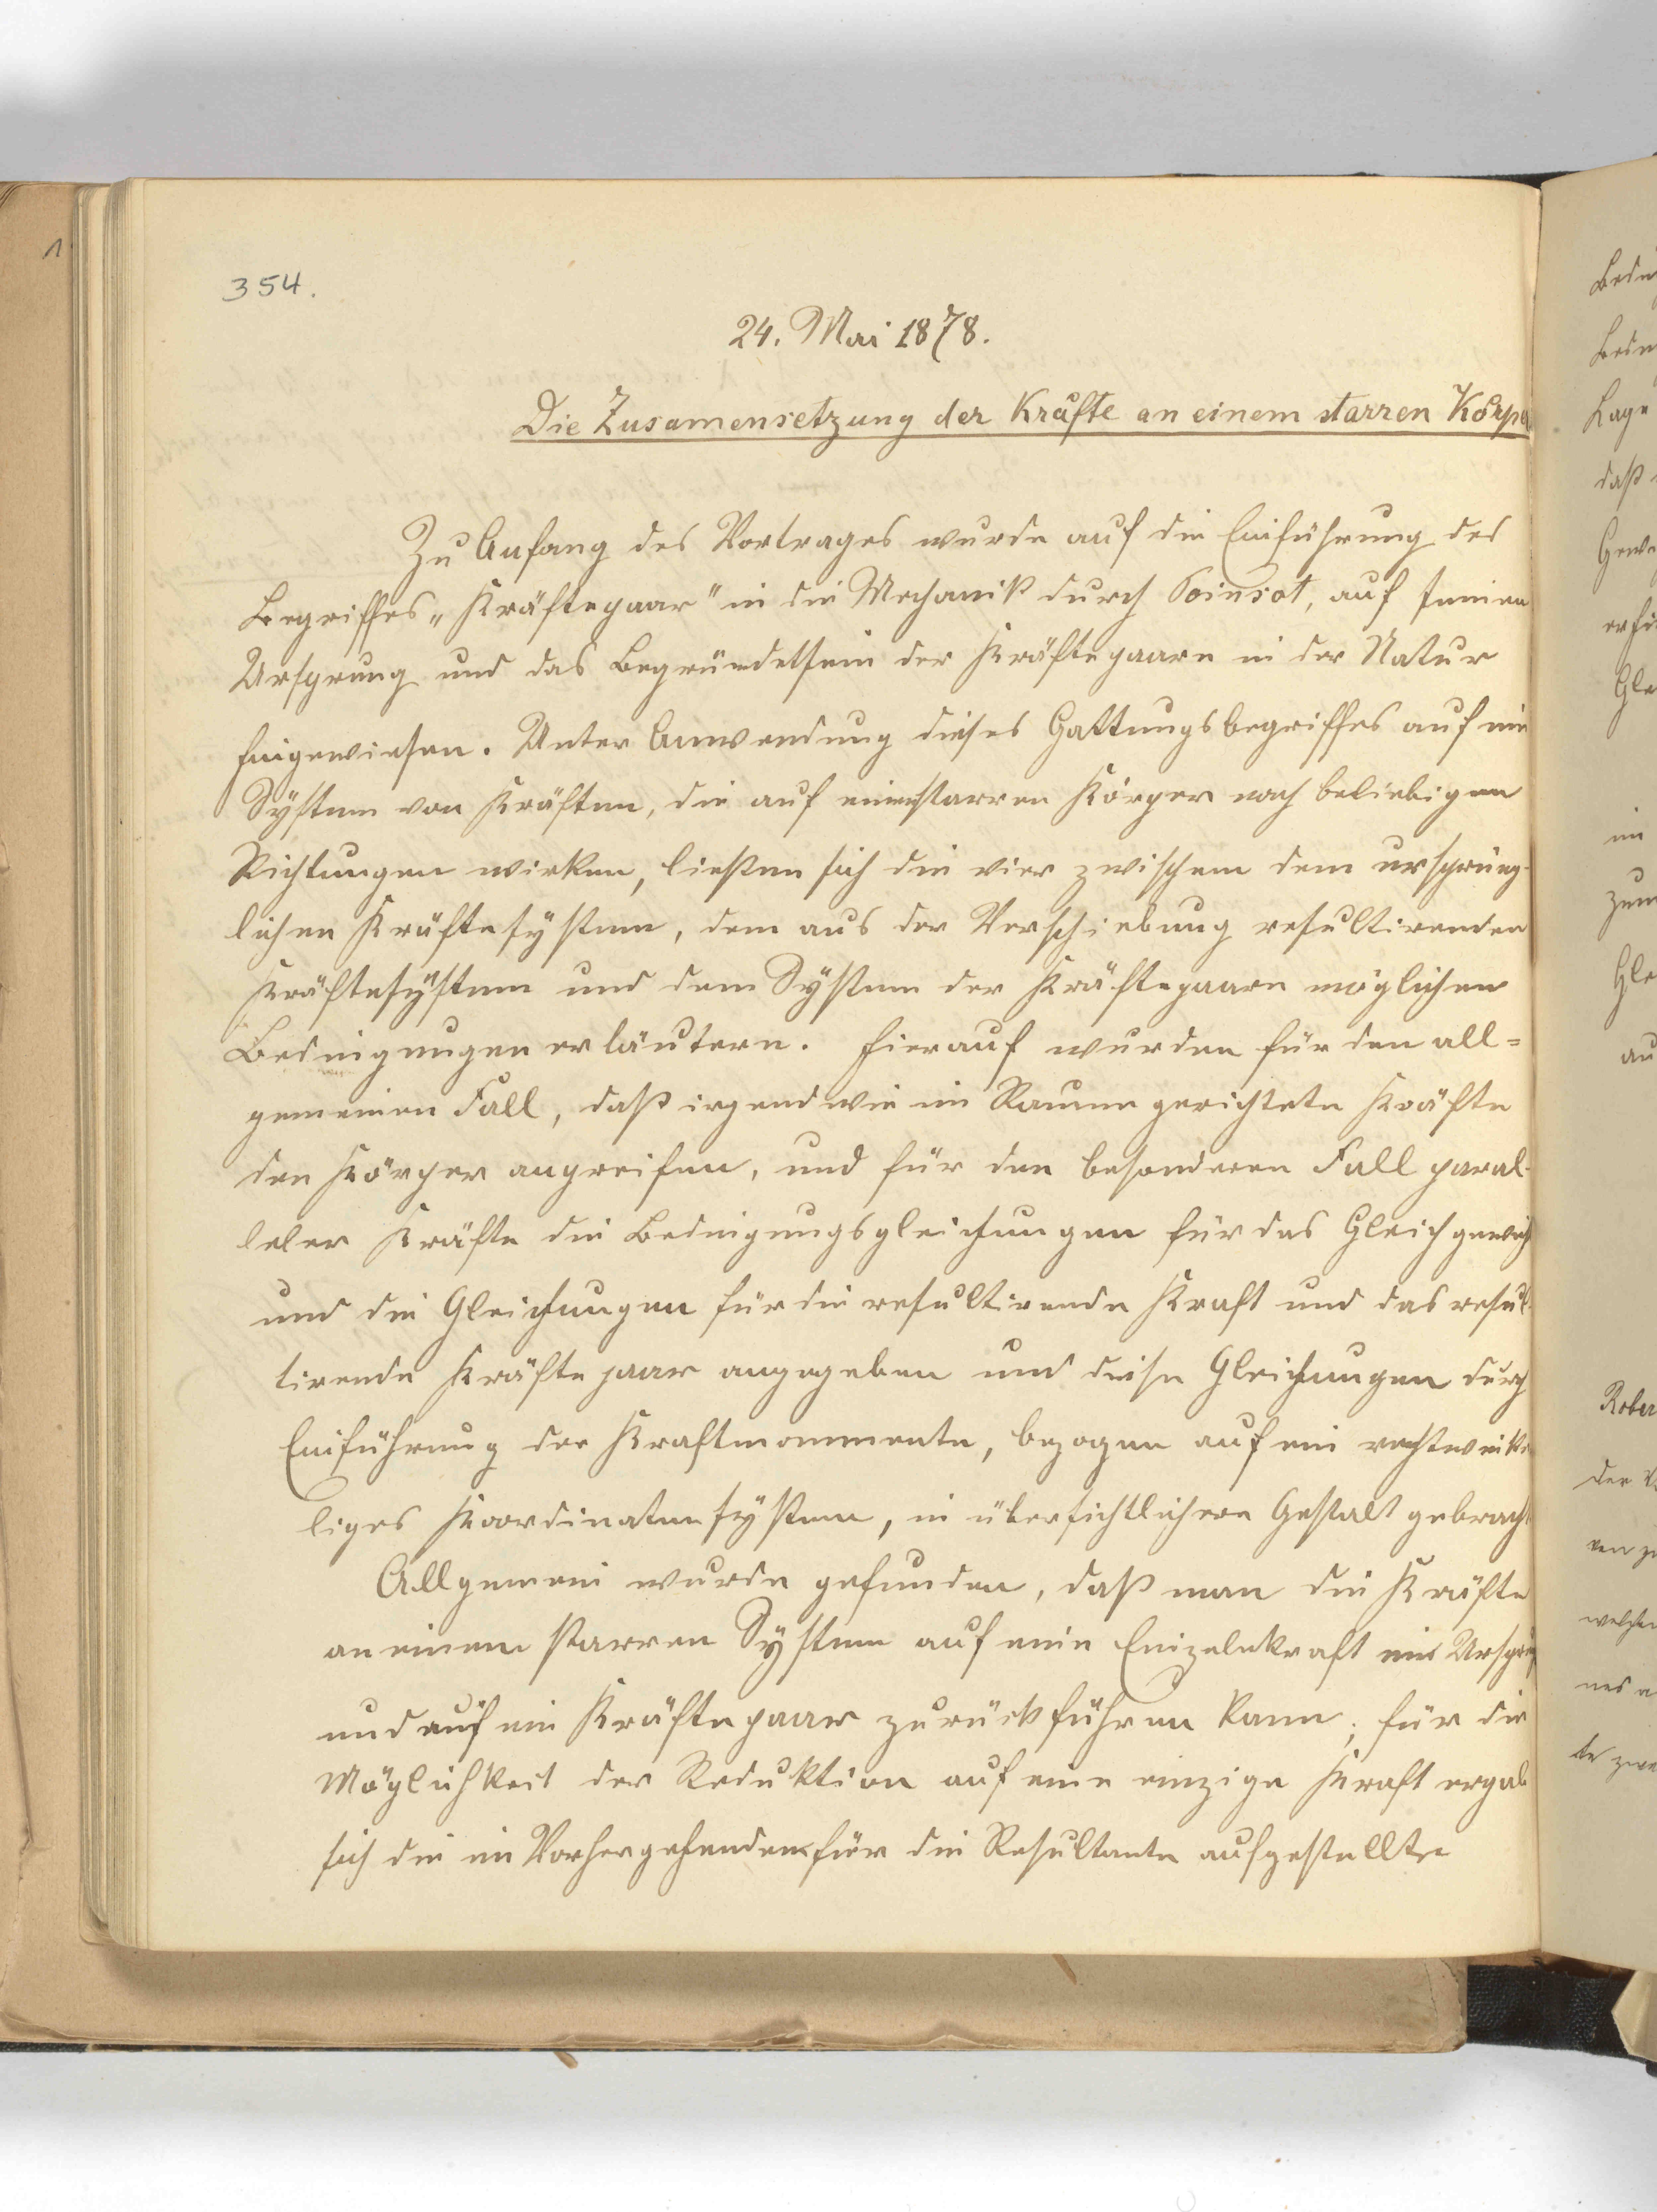 354.
24. Mai 1878.
Die Zusamensetzung der Kräfte an einem starren Körpe
Zu Anfang des Vortrages wurde auf die Einführung des
Begriffes „Kräftepaar" in die Mechanik durch Poinsot, auf seinen
Ursprung und das Begründetsein der Kräftepaare in der Natur
hingewiesen. Unter Anwendung dieses Gattungsbegriffes auf ein
System von Kräften, die auf einen starren Körper nach beliebigen
Richtungen wirken, ließen sich die vier zwischen dem ursprüng-
lichen Kräftesystem, dem aus der Verschiebung resultirenden
Kräftesystem und dem System der Kräftepaare möglichen
Bedingungen erläutern. Hierauf wurden für den all=
gemeinen Fall, daß irgend wie im Raume gerichtete Kräfte
den Körper angreifen, und für den besonderen Fall paral-
leler Kräfte die Bedingungsgleichungen für das Gleichgewich
und die Gleichungen für die resultirende Kraft und das resul-
tirende Kräftepaar angegeben und diese Gleichungen durch
Einführung der Kraftmommente, bezogen auf ein rechtwinke
liges Koordinatensystem, in übersichtlichere Gestalt gebracht
Allgemein wurde gefunden, daß man die Kräfte
an einem starren System auf eine Einzelnkraft im Ursprung
und auf ein Kräftepaar zurückführen kann; für die
Möglichkeit der Reduktion auf eine einzige Kraft ergab
sich die im Vorhergehenden für die Resultante aufgestellte
1
Lage
daß
Gle
im
zum
Gle
au
Rober
der V
ren zu
welche
nes
te zwe